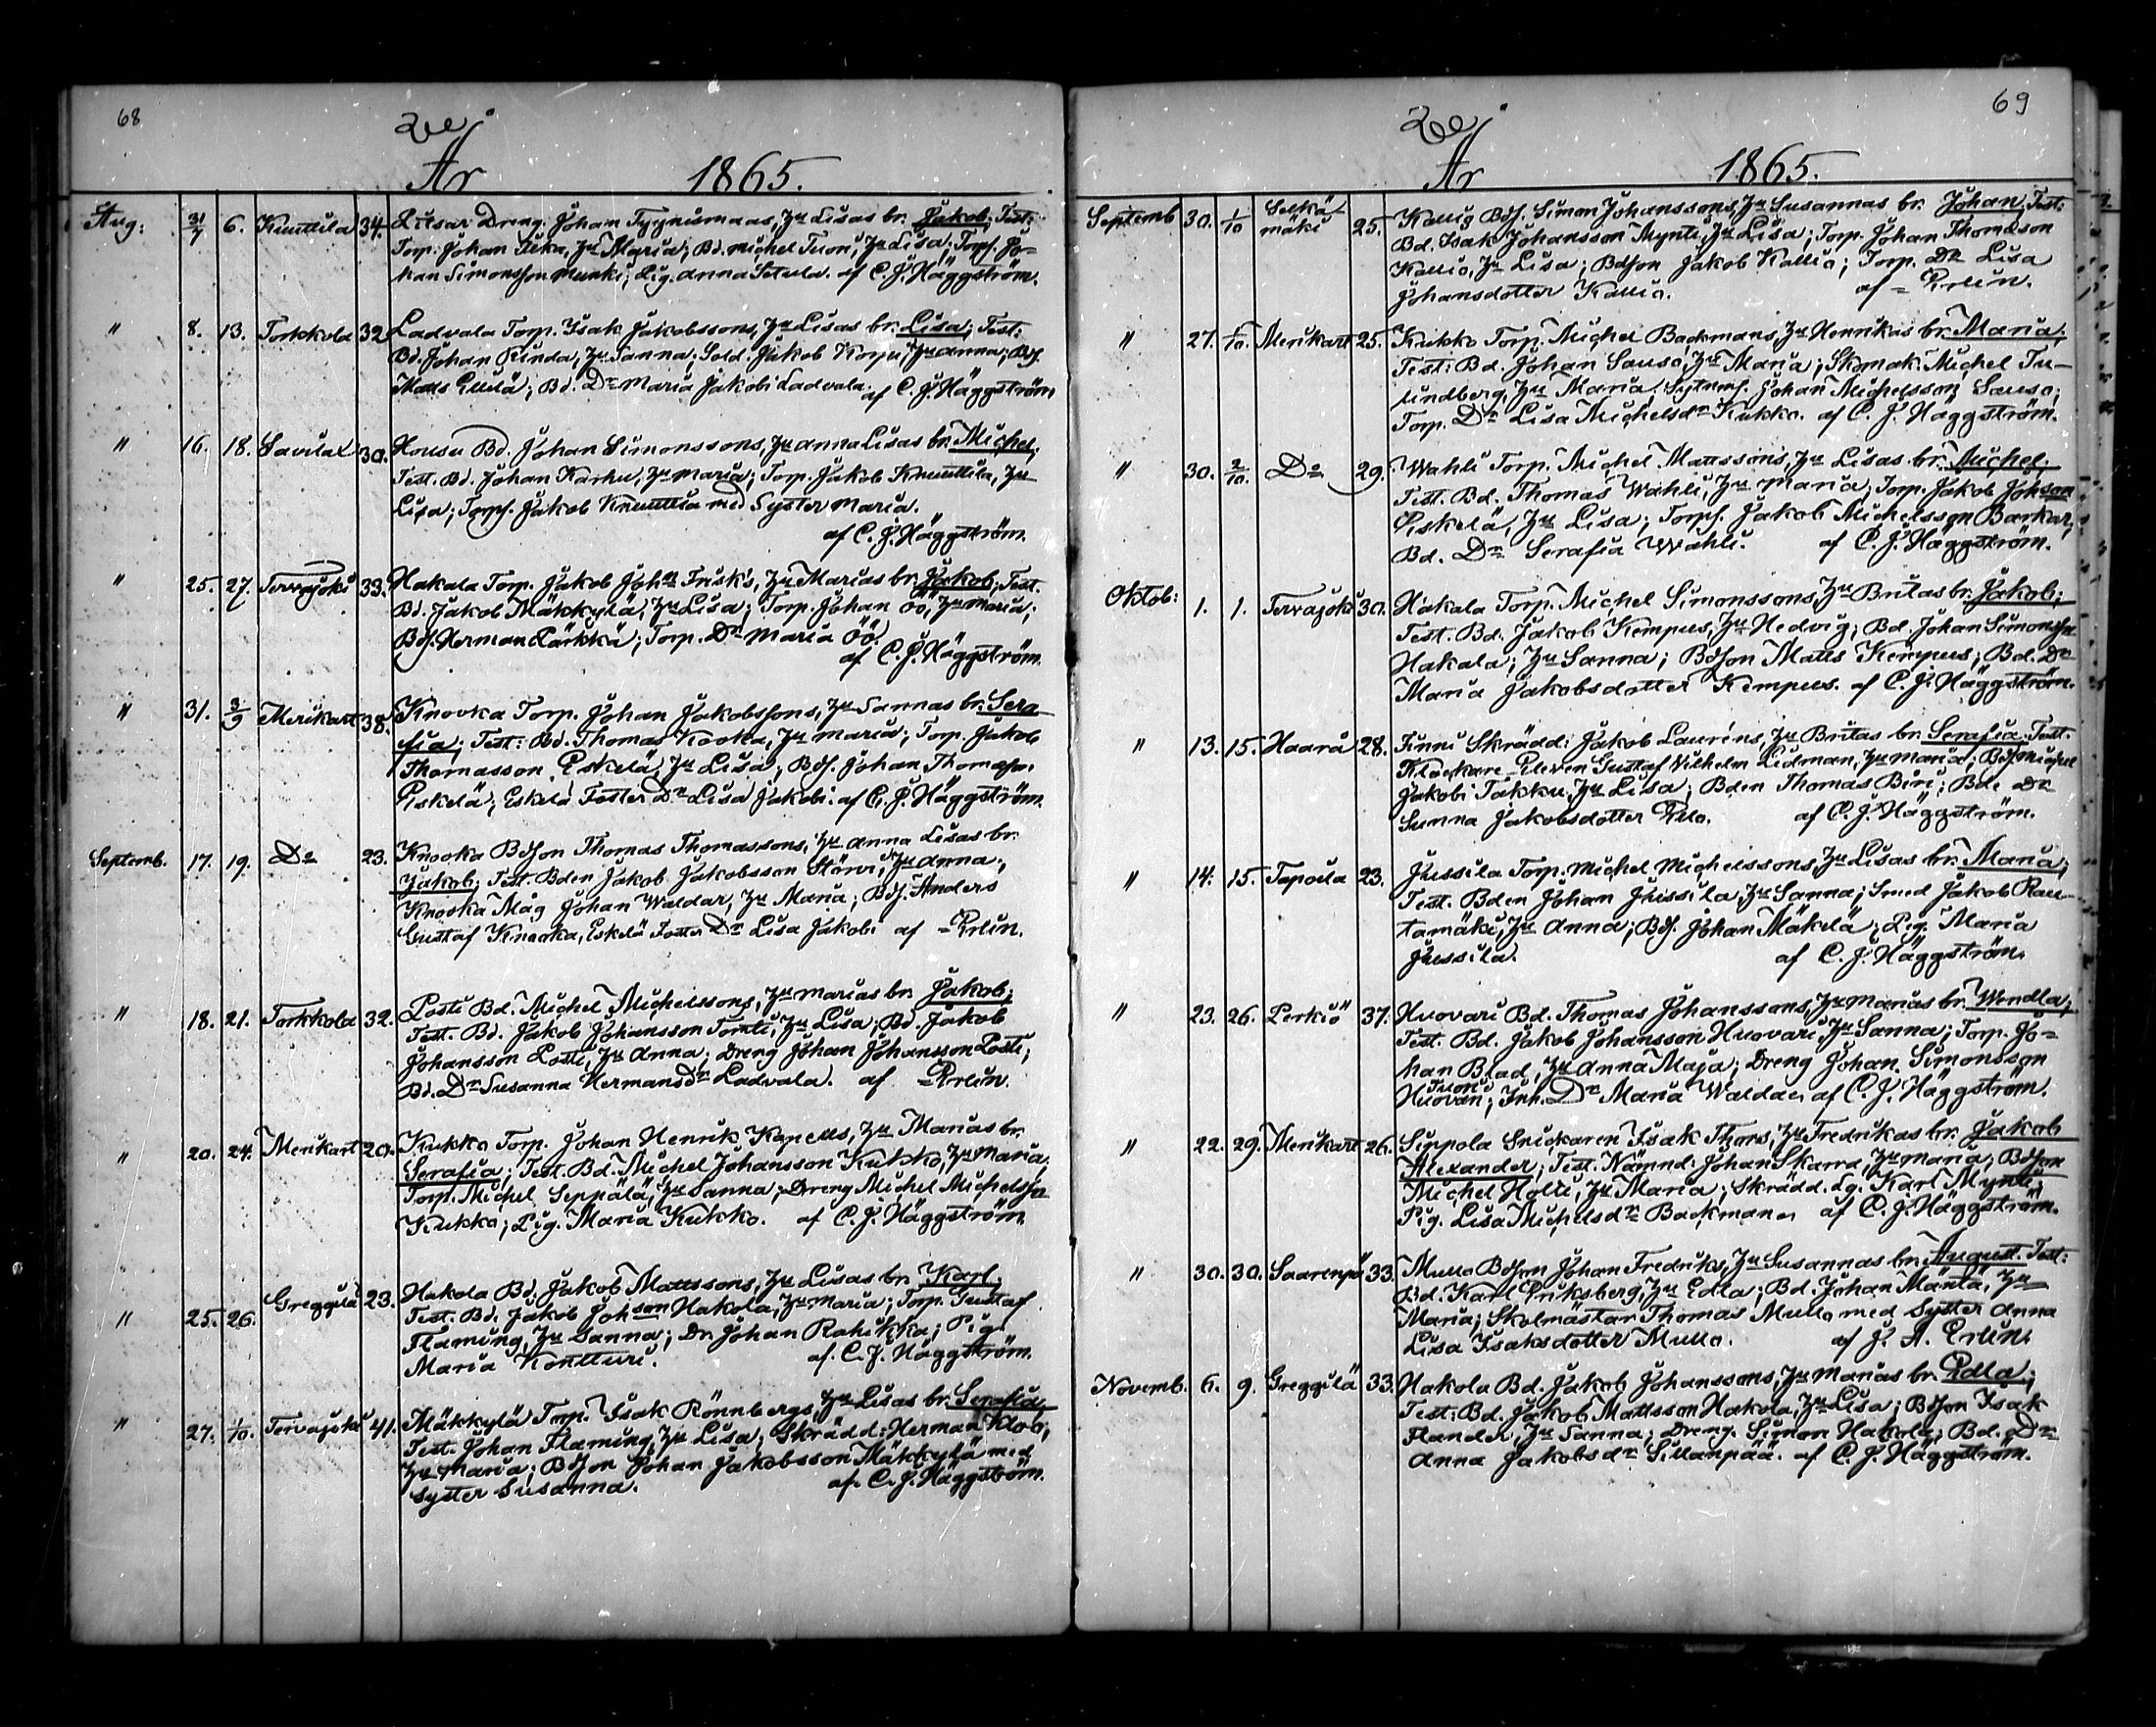 68
År 1865.
Aug: 31/7 6. Knuuttila 34. Litsar Dreng Johan Tyynismaas, Hu Lisas br. Jakob; Test:
Torp. Johan Ilkka, Hu Maria; Bd. Michel Tuori, Hu Lisa; Torps. Jo-
han Simonsson Munki; Pig. Anna Sotula. af C. J. Häggström.
" 8. 13. Torkkola 32 Ladvala Torp. Isak Jakobssons, Hu Lisas br. Lisa; Test:
Bd. Johan Rinda, Hu Sanna; Sold. Jakob Korpi, Hu Anna; Bds.
Matts Ellilä; Bd. Dr Maria Jakobi Ladvala. af C. J. Häggström
" 16. 18. Savilax 30. Housu Bd. Johan Simonssons, Hu Anna Lisas br. Michel;
Test. Bd. Johan Karhu, Hu Maria; Torp. Jakob Knuuttila, Hu
Lisa; Torps. Jakob Knuuttila med Syster Maria.
af C. J. Häggström.
" 25. 27. Tervajoki 33. Hakala Torp. Jakob Johan Frisk's, Hu Marias br. Jakob; Test.
Bd. Jakob Mäkkylä, Hu Lisa; Torp. Johan Öö, Hu Maria;
Bds. Herman Pärkkä; Torp. Dr Maria Öö.
af C. J. Häggström.
" 31. 3/9 Merikart 38. Knooka Torp. Johan Jakobssons, Hu Sannas br. Sera
fia; Test: Bd. Thomas Kooka, Hu Maria; Torp. Jakob
Thomasson Eskelä, Hu Lisa; Bds. Johan Thomasson
Piskelä; Eskelä Foster Dr Lisa Jakobi. af C. J. Häggström.
Septemb. 17. 19. Do 23. Knooka Bdson Thomas Thomassons, Hu Anna Lisas br.
Jakob; Test. Bden Jakob Jakobsson Storvi, Hu Anna;
Knooka Måg Johan Waldar, Hu Maria; Bds. Anders
Gustaf Knooka, Eskelä Foster Dr Lisa Jakobi af - Erlin.
" 18. 21. Torkkola 32. Posti Bd. Michel Michelssons, Hu Marias br. Jakob;
Test. Bd. Jakob Johansson Tomti, Hu Lisa; Bd. Jakob
Johansson Posti, Hu Anna; Dreng Johan Johansson Posti;
Bd. Dr Susanna Hermansdr Ladvala. af - Erlin.
" 20. 24. Merikart 20. Kukko Torp. Johan Henrik Kapells, Hu Marias br.
Serafia; Test. Bd. Michel Johansson Kukko, Hu Maria;
Torp. Michel Seppälä, Hu Sanna; Dreng Michel Michelsson
Kukko; Pig. Maria Kukko. af C. J. Häggström
" 25. 26. Greggilä 23. Hakola Bd. Jakob Mattssons, Hu Lisas br. Karl;
Test. Bd. Jakob Johson Hakola, Hu Maria; Torp. Gustaf
Flaming, Hu Sanna; Dr. Johan Rahikka; Pig.
Maria Kontturi. af. C. J. Häggström.
" 27. 1/10. Tervajoki 41. Mäkkylä Torp. Isak Rönnbergs, Hu Lisas br. Serafia;
Test. Johan Flaming, Hu Lisa; Skrädd: Herman Klob,
Hu Maria; Bdson Johan Jakobsson Mäkkylä med
Syster Susanna. af. C. J. Häggström.
69
År 1865.
Septemb 30. 1/10 Selkämäki 25. Kallio Bds. Simon Johanssons, Hu Susannas br. Johan; Test:
Bd. Isak Johansson Mynti, Hu Lisa; Torp. Johan Thomasson
Kallio, Hu Lisa; Bdson Jakob Kallio; Torp. Dr Lisa
Johansdotter Kallio. af - Erlin.
" 27. 1/10. Merikart 25. Kukko Torp. Michel Backmans, Hu Henrikas br. Maria;
Test: Bd. Johan Sauso, Hu Maria; Skomak: Michel Tu-
lindberg, Hu Maria; Sytnings. Johan Michelsson Sauso;
Torp. Dr Lisa Michelsdr Kukko. af C. J. Häggström.
" 30. 2/10. Do 29. Wähli Torp. Michel Mattssons, Hu Lisas br. Michel;
Test. Bd. Thomas Wähli, Hu Maria; Torp. Jakob Johson
Piskelä, Hu Lisa; Torps. Jakob Michelsson Barkar,
Bd. Dr Serafia Wähli. af C. J. Häggström.
Oktob: 1. 1. Tervajoki 30. Hakala Torp. Michel Simonssons, Hu Britas br. Jakob;
Test. Bd. Jakob Kempus, Hu Hedvig; Bd. Johan Simonsson
Hakala; Hu Sanna; Bdson Matts Kempus; Bd. Dr
Maria Jakobsdotter Kempus. af C. J. Häggström.
" 13. 15. Haarå 28. Finni Skrädd: Jakob Lauréns, Hu Britas br. Serafia Test.
Klockare Eleven Gustaf Vilhelm Lidman, Hu Maria; Bds. Michel
Jakobi Takku, Hu Lisa; Bden Thomas Biri; Bde Dr
Sunna Jakobsdotter Filo. af C. J. Häggström.
" 14. 15. Tapoila 23. Jussila Torp. Michel Michelssons, Hu Lisas br. Maria;
Test. Bden Johan Jussila, Hu Sanna; Smed Jakob Rau-
tamäki, Hu Anna; Bds. Johan Mäkelä; Pig. Maria
Jussila. af C. J. Häggström.
" 23. 26. Perkiö 37. Huovari Bd. Thomas Johanssons, Hu Marias br. Wendla;
Test. Bd. Jakob Johansson Huovari, Hu Sanna; Torp. Jo-
han Blad, Hu Anna Maja; Dreng Johan Simonsson
Tuori
Huovari; Inh. Dr Maria Waldar af C. J. Häggström.
" 22. 29. Merikart 26. Seppola Snickaren Isak Thors, Hu Fredrikas br. Jakob
Alexander; Test. Nämnd: Johan Skarra, Hu Maria; Bdson
Michel Holli, Hu Maria; Skrädd. Lg. Karl Mynti;
Pig. Lisa Michelsdr Backman. af C. J. Häggström.
" 30. 30. Saarenpä 33. Mullo Bdson Johan Fredriks, Hu Susannas br. August. Test:
Bd. Karl Eriksberg, Hu Edla; Bd. Johan Mäntä, Hu
Maria; Skolmästar Thomas Mullo med Syster Anna
Lisa Isaksdotter Mullo. af J. A. Erlin.
Novemb. 6. 9. Greggilä 33. Hakola Bd. Jakob Johanssons, Hu Marias br. Edla;
Test: Bd. Jakob Mattsson Hakola, Hu Lisa; Bdson Isak
Flander, Hu Sanna; Dreng. Simon Hakola; Bd. Dr
Anna Jakobsdr Sillanpää. af C. J. Häggström.